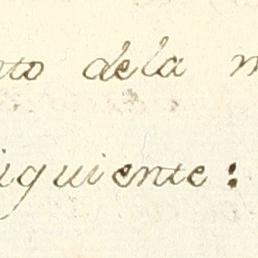 nto dela m
iguiente: